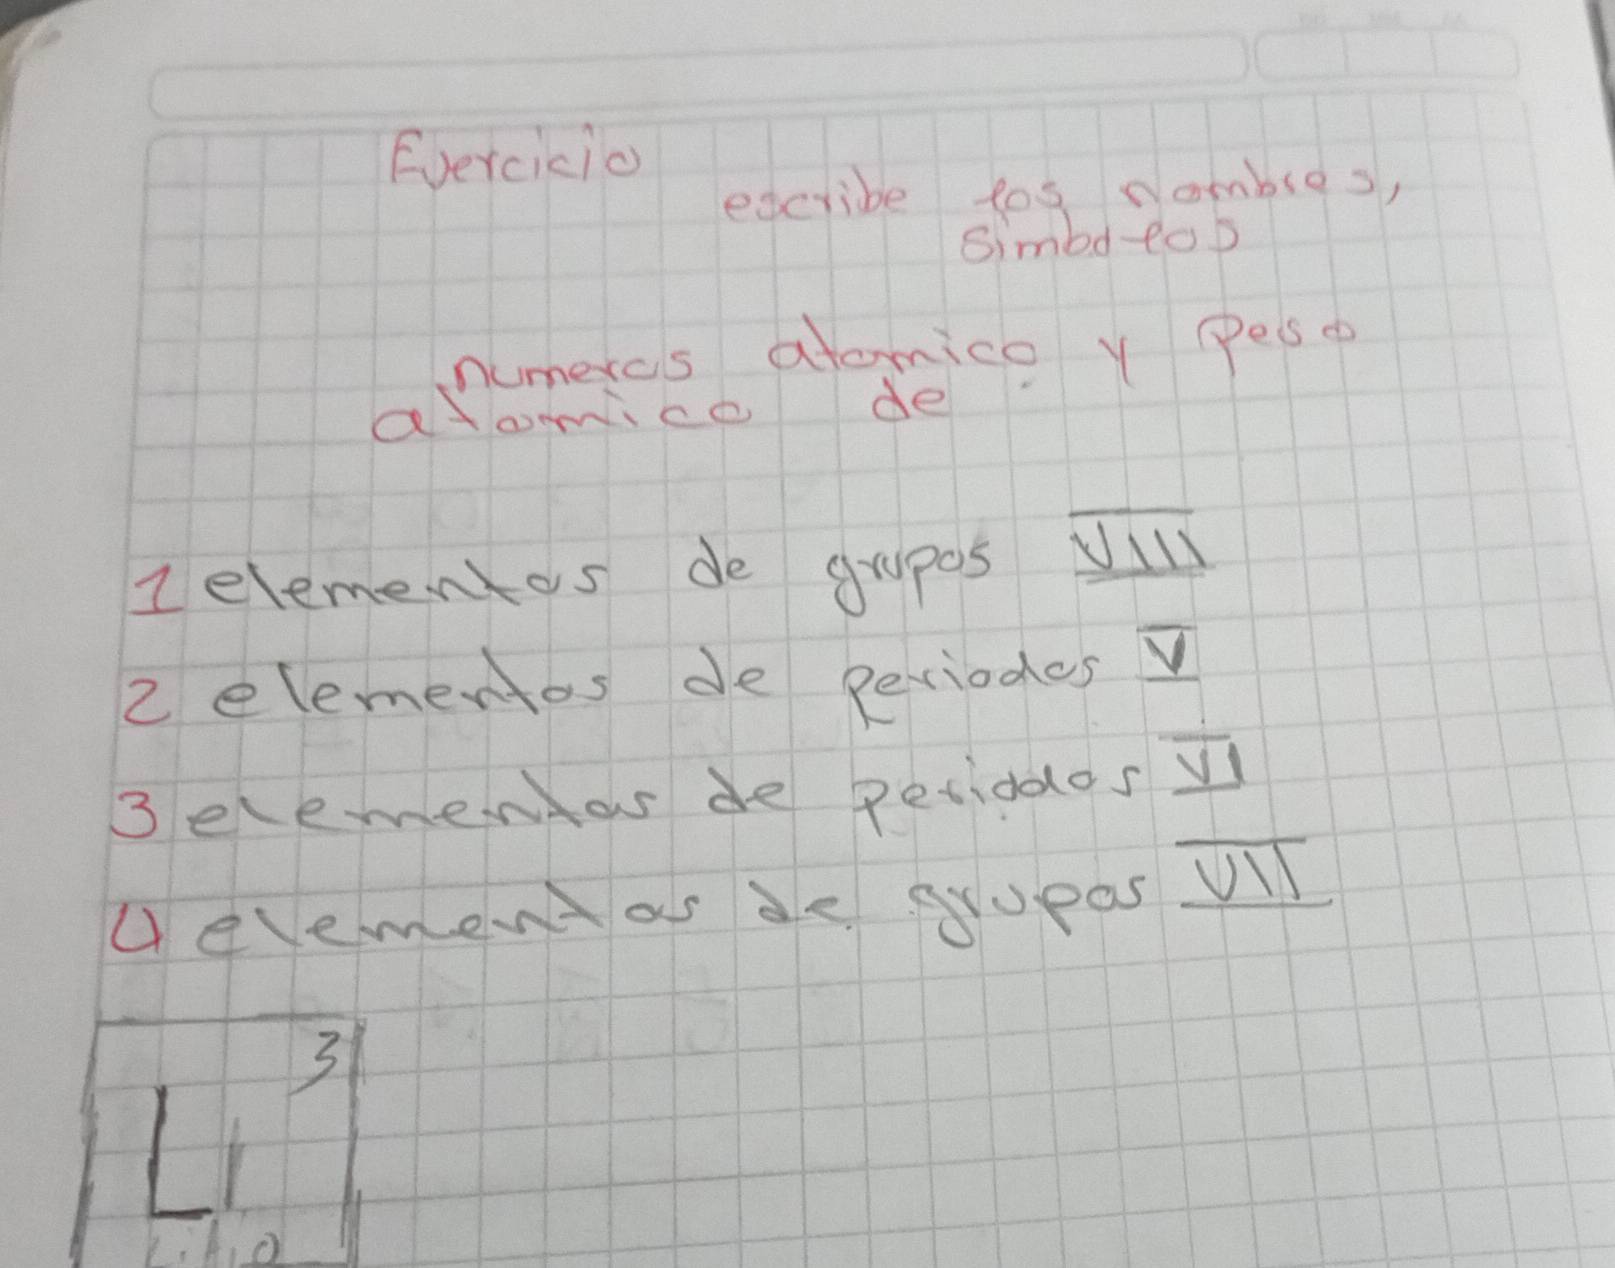 Ejercicio
escribe los nombres,
simbolos
numeros atomico y Peso
atomico de
1 elementos de grupos VIII
2 elementos de periodos V
3 elementos de periodos VI
4 elementos de grupos VII
3
Li